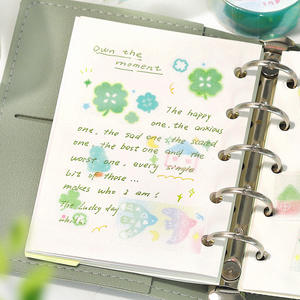 Own the
moment
The happy
one, the anxious
one, the sad one, the scared
one, the best one and the
worst one. every single
bit of those...
makes who I am!
The lucky day